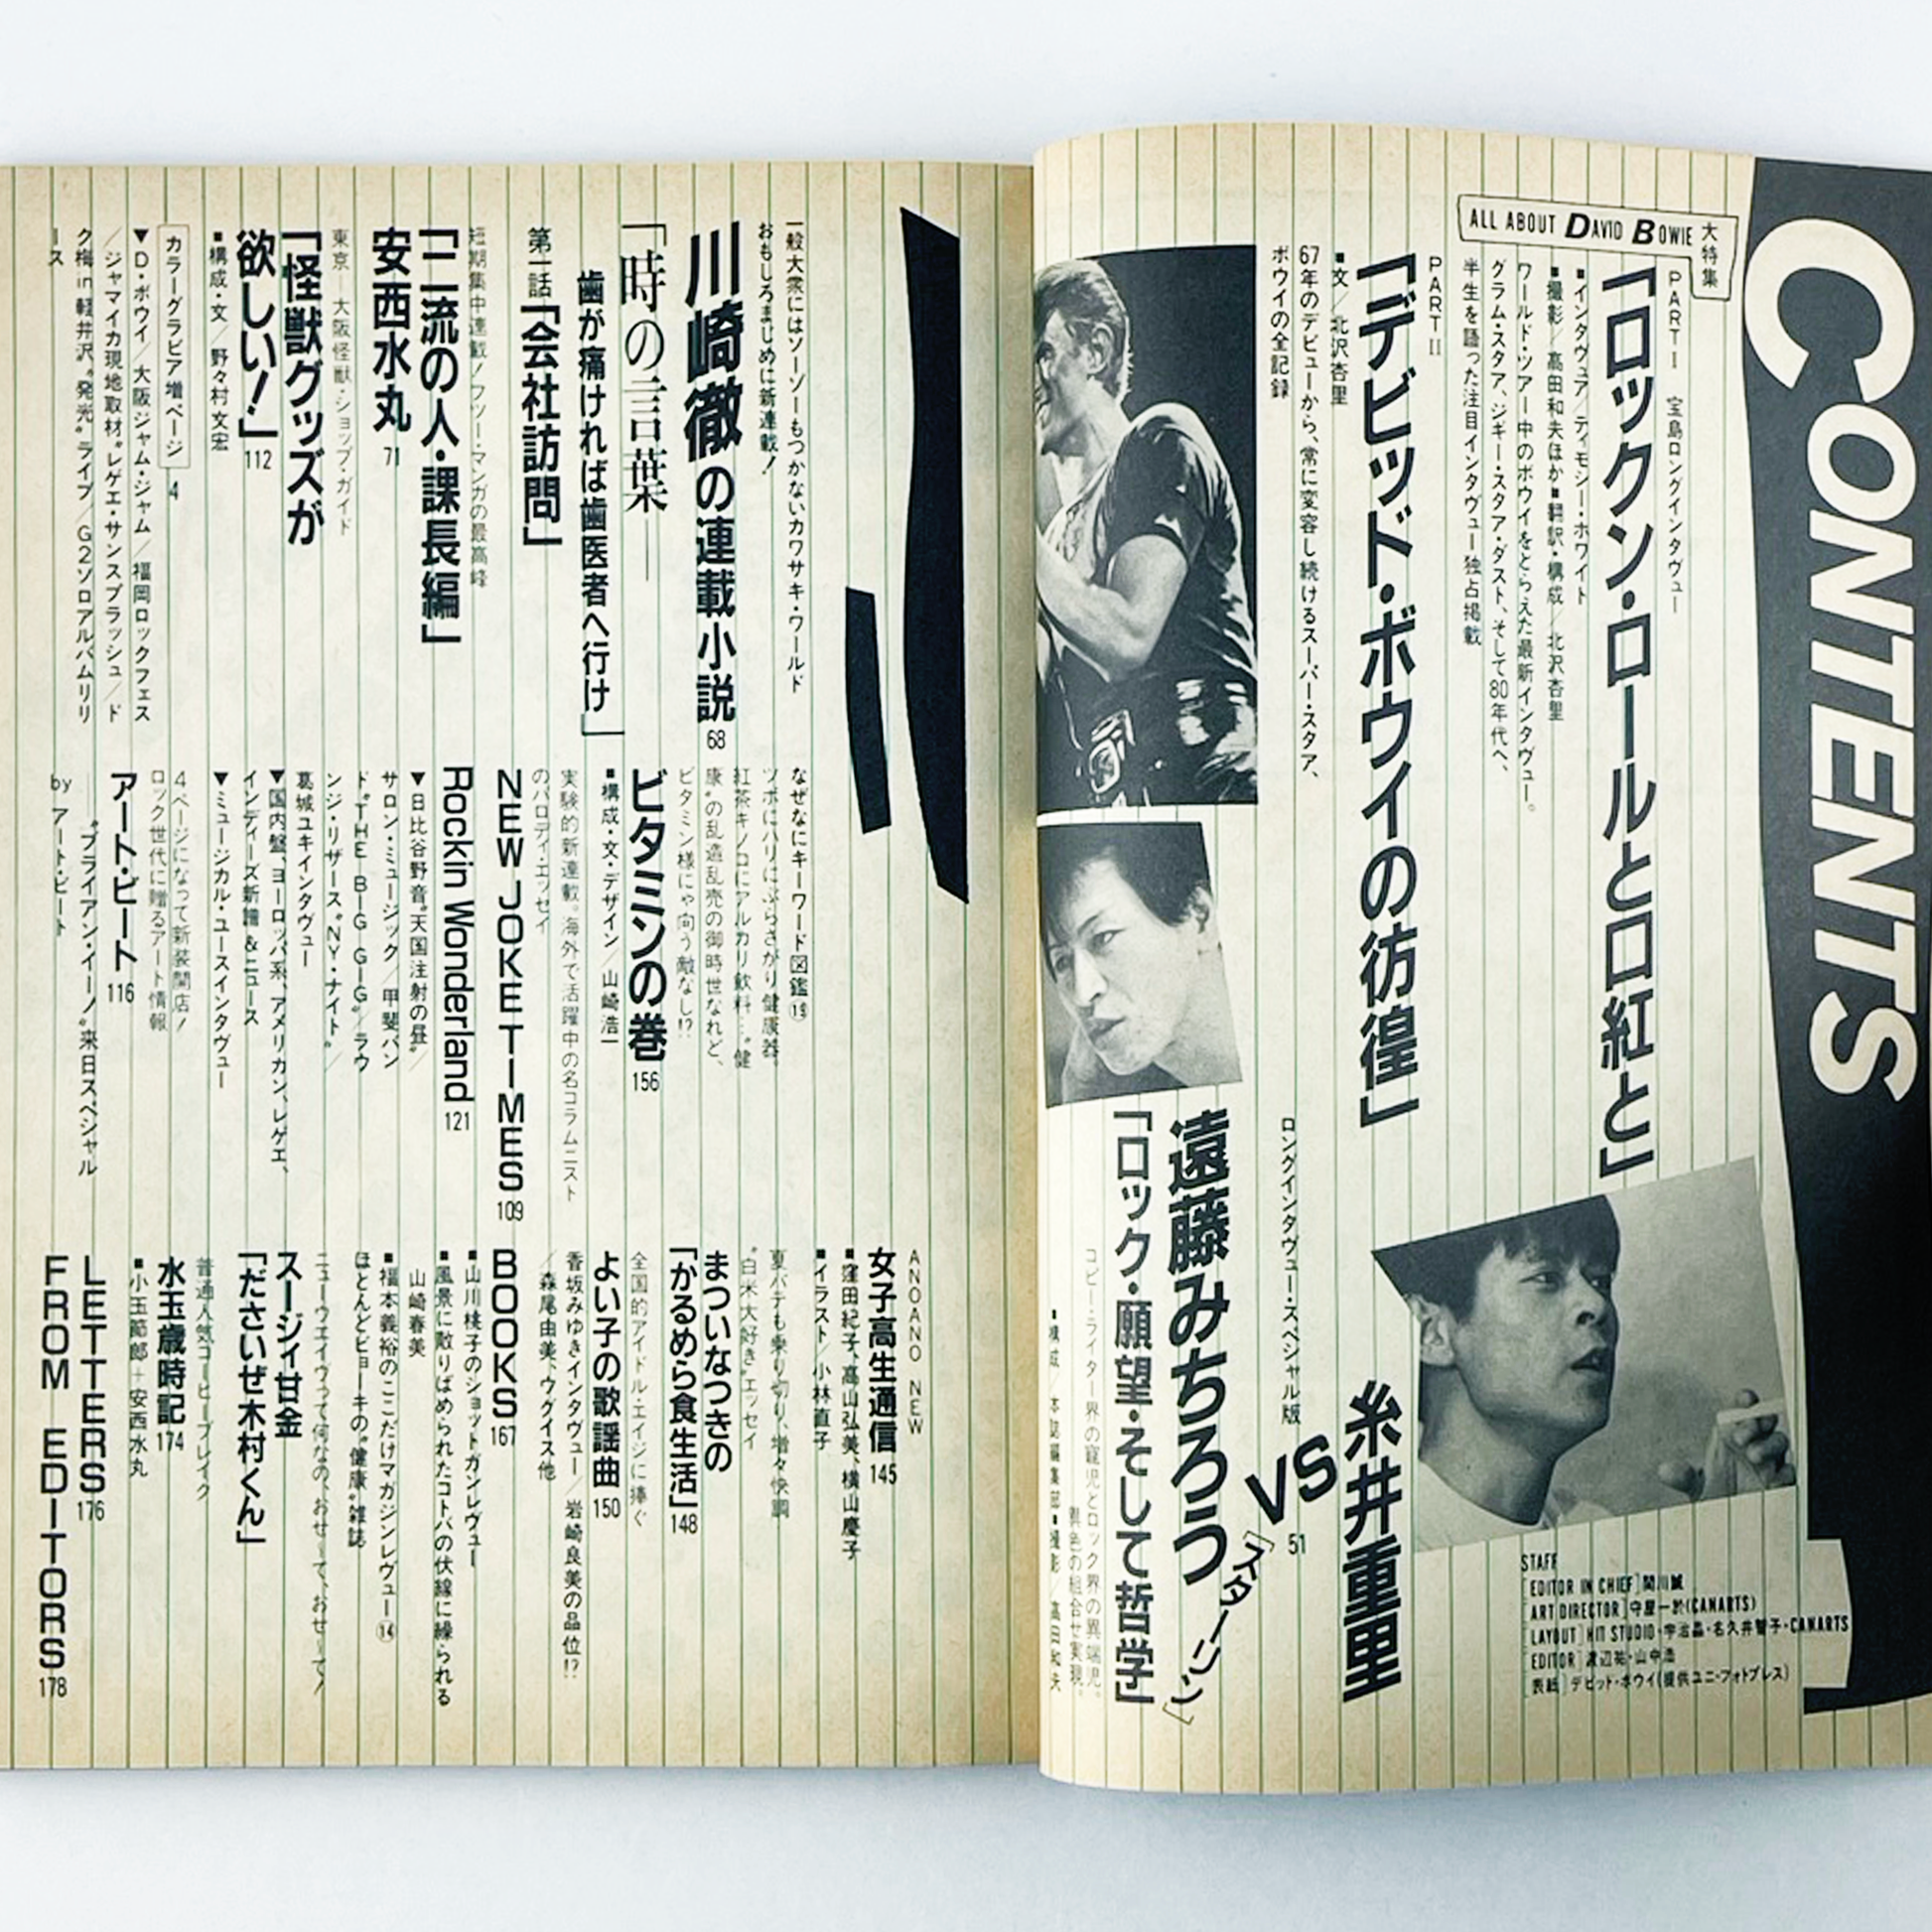 CONTENTS
大特集
ALL ABOUT DAVID BOWIE
PART I 宝島ロングインタヴュー
「ロックン・ロールと口紅と」
■インタヴュア/ティモシー・ホワイト
■撮影/高田和夫ほか■翻訳・構成/北沢杏里
ワールド・ツアー中のボウイをとらえた最新インタヴュー。
グラム・スタア、ジギー・スタア・ダスト、そして80年代へ、
半生を語った注目インタヴュー独占掲載
PART II
「デビッド・ボウイの彷徨」
■文/北沢杏里
67年のデビューから、常に変容し続けるスーパー・スタア、
ボウイの全記録
ロングインタヴュー・スペシャル版
糸井重里
VS
51
遠藤みちろう
[スターリン]
「ロック・願望・そして哲学」
コピー・ライター界の寵児とロック界の異端児。
異色の組合せ実現。
■構成/本誌編集部■撮影/高田和夫
STAFF
[EDITOR IN CHIEF]関川誠
[ART DIRECTOR]守屋一於(CANARTS)
[LAYOUT]HIT STUDIO・宇治晶・名久井智子・CANARTS
[EDITOR]渡辺祐・山中浩
[表紙]デビット・ボウイ(提供ユニ・フォトプレス)
一般大衆にはソーゾーもつかないカワサキ・ワールド
おもしろまじめに新連載!
川崎徹の連載小説68
「時の言葉――
歯が痛ければ歯医者へ行け」
第一話「会社訪問」
短期集中連載!フツー・マンガの最高峰
「二流の人・課長編」
安西水丸71
東京―大阪怪獣・ショップ・ガイド
「怪獣グッズが
欲しい!」112
■構成・文/野々村文宏
カラーグラビア増ページ 4
▼D・ボウイ/大阪ジャム・ジャム/福岡ロックフェス
/ジャマイカ現地取材“レゲエ・サンスプラッシュ/ド
ク梅in軽井沢“発光”ライブ/G2ソロアルバムリリ
ース
なぜなにキーワード図鑑⑲
ツボにハリにぶらさがり健康器、
紅茶キノコにアルカリ飲料…“健
康”の乱造乱売の御時世なれど、
ビタミン様にゃ向う敵なし!?
ビタミンの巻156
■構成・文・デザイン/山崎浩一
実験的新連載。海外で活躍中の名コラムニスト
のパロディ・エッセイ
NEW JOKE TIMES109
Rockin Wonderland121
▼日比谷野音“天国注射の昼”/
サロン・ミュージック/甲斐バン
ド“THE BIG GIG”/ラウ
ンジ・リザース“NY・ナイト”/
葛城ユキインタヴュー
▼国内盤、ヨーロッパ系、アメリカン、レゲエ、
インディーズ新譜&ニュース
▼ミュージカル・ユースインタヴュー
4ページになって新装開店!
ロック世代に贈るアート情報
アート・ビート116
―“ブライアン・イーノ”来日スペシャル
by アート・ビート
ANOANO NEW
女子高生通信145
■窪田紀子、高山弘美、横山慶子
■イラスト/小林直子
夏バテも乗り切り、増々快調
“白米大好き”エッセイ
まついなつきの
「かるめら食生活」148
全国的アイドル・エイジに捧ぐ
よい子の歌謡曲150
香坂みゆきインタヴュー/岩崎良美の品位!?
/森尾由美、ウグイス他
BOOKS167
■山川桃子のショットガンレヴュー
■風景に散りばめられたコトバの伏線に繰られる
山崎春美
■福本義裕のここだけマガジンレヴュー⑭
ほとんどビョーキの“健康”雑誌
ニューウエイヴって何なの、おせーて、おせーて!
スージィ甘金
「ださいぜ木村くん」
普通人気コーヒーブレイク
水玉歳時記174
■小玉節郎+安西水丸
LETTERS176
FROM EDITORS178